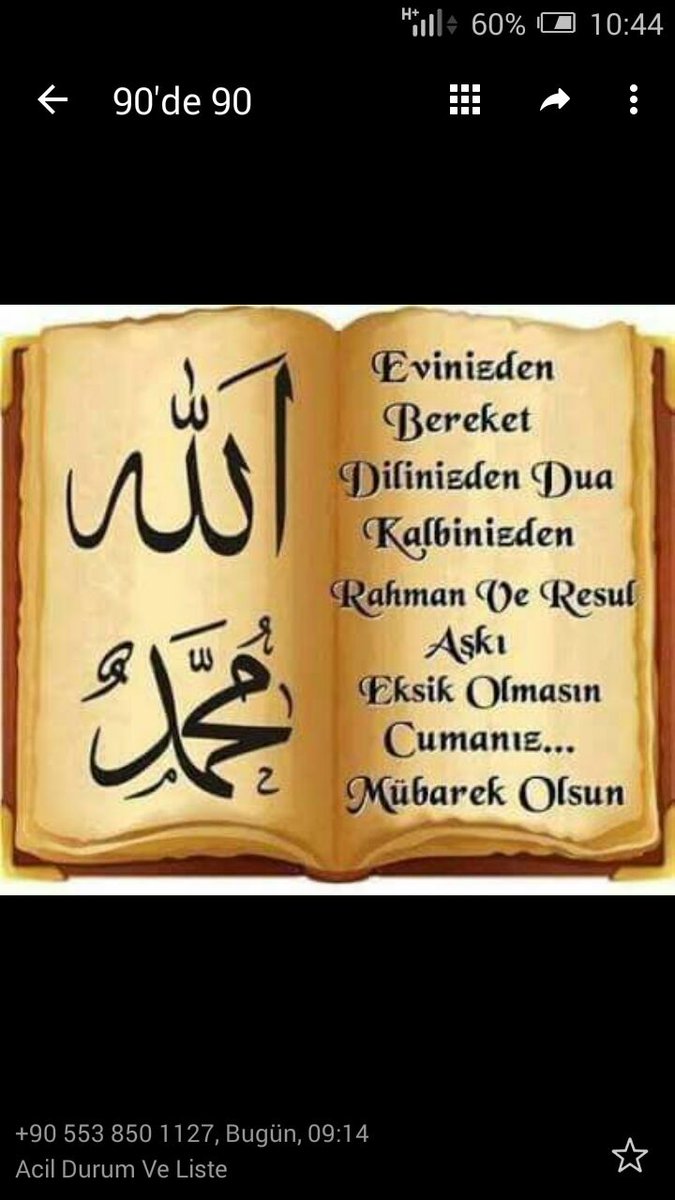 H+ 60% 10:44
90'de 90
الله
محمد
Evinizden
Bereket
Dilinizden Dua
Kalbinizden
Rahman Ve Resul
Aşkı
Eksik Olmasın
Cumanız...
Mübarek Olsun
+90 553 850 1127, Bugün, 09:14
Acil Durum Ve Liste